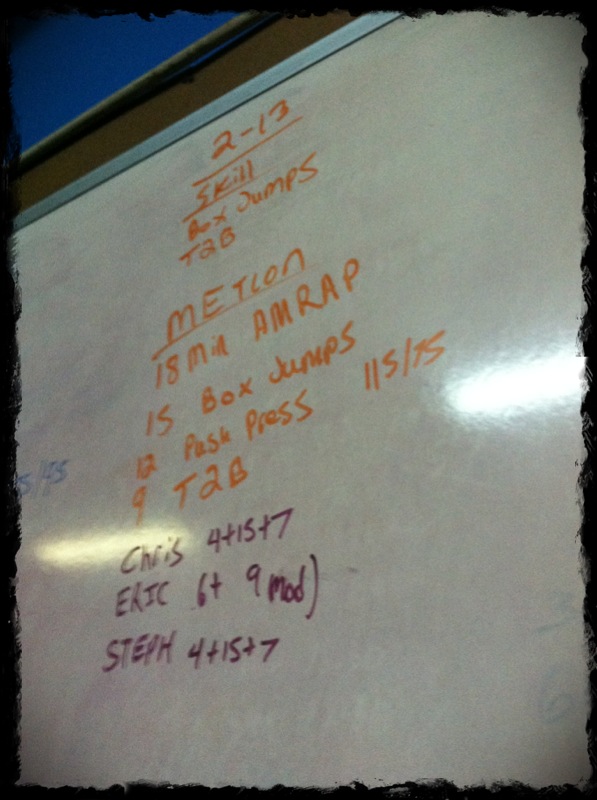 2-13
Skill
Box Jumps
T2B
METCON
18 Min AMRAP
15 Box Jumps
12 Push Press 115/75
9 T2B
Chris 4+15+7
ERIC 6+ 9 mod)
STEPH 4+15+7